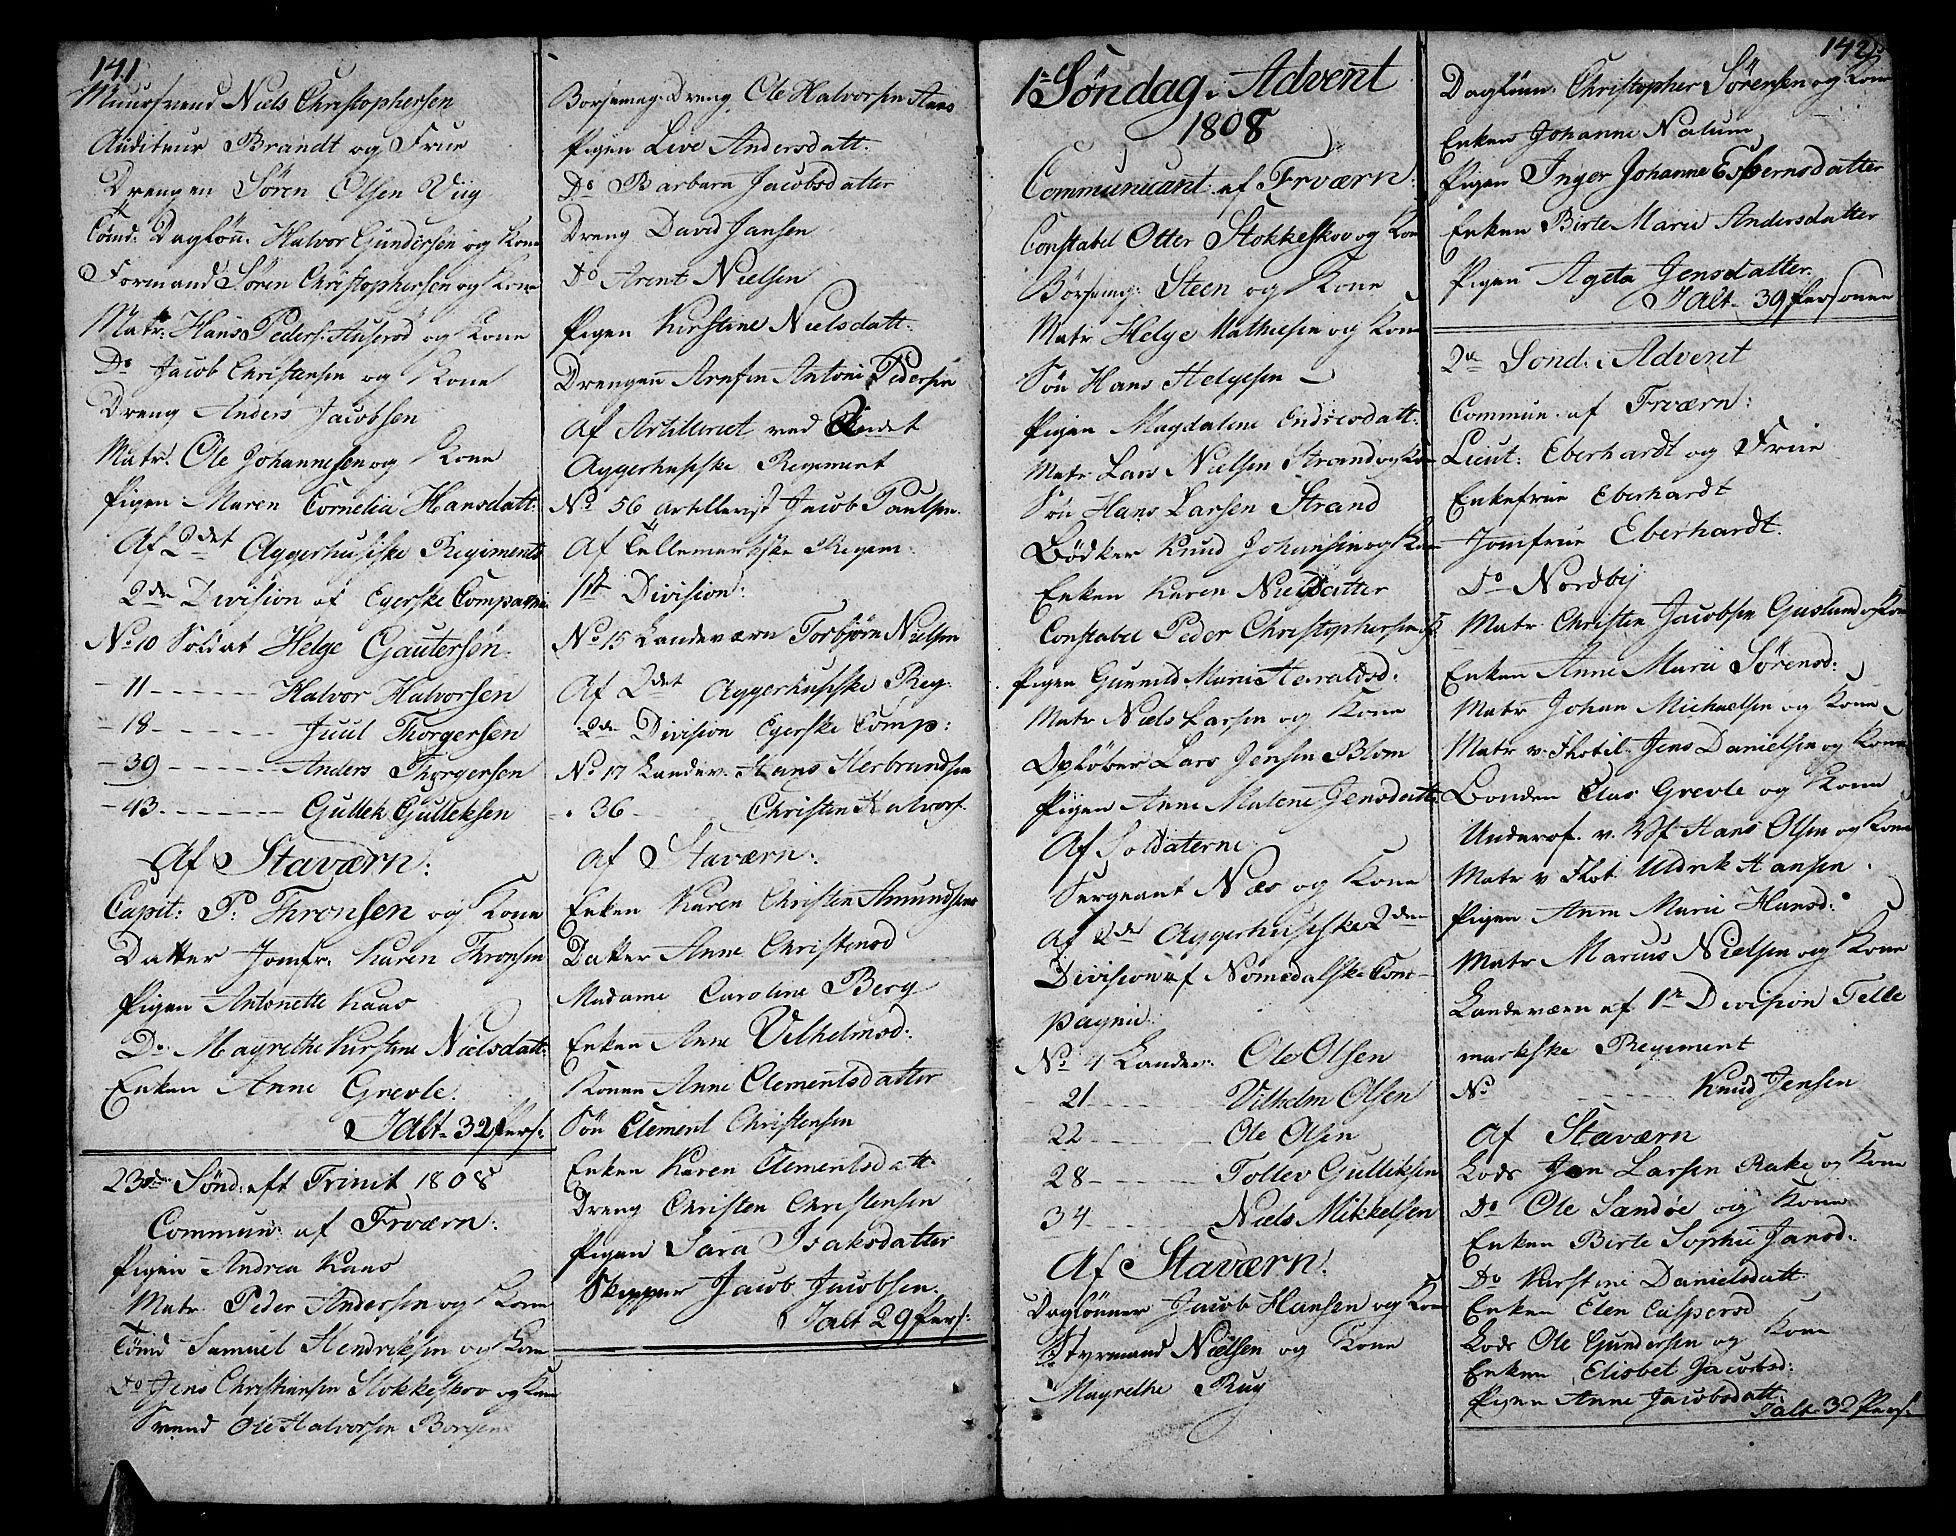 141
Muursvend Niels Christophersen
Auditeur Brandt og Frue
Drengen Søren Olsen Viig
Tømd: Dagløn: Halvor Gundersen og Kone
Formand Søren Christophersen og Kone
Matr: Hans Peders: Auserød og Kone
Do Jacob Christensen og Kone
Dreng Anders Jacobsen
Matr. Ole Johannesen og Kone
Pigen Maren Cornelia Hansdatt:
Af 2det Aggerhusiske Regiments
2den Division af Egerske Compagnie
No 10 Soldat Helge Gautersøn
- 11 - Halvor Halvorsen
- 18 - Juul Thorgersen
- 39 - Anders Thorgersen
- 43 - Gullek Gulleksen
Af Staværn:
Capit: P. Thronsen og Kone
Datter Jomfr. Karen Thronsen
Pigen Antonette Kaas
Do Magrethe Kirstine Nielsdatt:
Enken Anne Grevle.
Ialt 32 Pers:
23de Sønd: eft Trinit 1808
Commun: af Frværn:
Pigen Andrea Kaas
Matr Peder Andersen og Kone
Tømd Samuel Hendriksen og Kone
Do Jens Christiansen Stokkeskov og Kone
Svend Ole Halvorsen Borgen
Børsemag: Dreng Ole Halvorsen Aaes
Pigen Live Andersdatt:
Do Barbara Jacobsdatter
Dreng David Jansen
Do Arent Nielsen
Pigen Kirstine Nielsdatt:
Drengen Arnfin Antoni Pedersen
Af Artilleriet ved 2det
Aggerhusiske Regiment
No 56 Artillerist Jacob Paulsen.
Af Tellemarkske Regim:
1st Division:
No 15 Landeværn Torbjørn Nielsen
Af 2det Aggerhusiske Reg.
2den Division Egerske Comp:
No 17 Landev. Hans Herbrandsen
- 36 Christen Halvors.
Af Staværn:
Enken Karen Christen Amundsens
Datter Anne Christensd
Madame Caroline Berg
Enken Anne Vilhelmsd:
Konen Anne Clementsdatter
Søn Clement Christensen
Enken Karen Clementsdatt:
Dreng Christen Christensen
Pigen Sara Isaksdatter
Skipper Jacob Jacobsen.
Ialt 29 Pers:
1e Søndag i Advent
1808
Communicant: af Frværn:
Constabel Otter Stokkeskov og Kone
Børsemag: Steen og Kone
Matr Helge Mathiesen og Kone
Søn Hans Helgesen
Pigen Magdalene Endresdatt:
Matr Lars Nielsen Strand og Kone
Søn Hans Larsen Strand
Bødker Knud Johansen og Kone
Enken Karen Nielsdatter
Constabel Peder Christophersen og K
Pigen Gunnild Marie Haraldsd:
Matr Niels Larsen og Kone
Opløber Lars Jensen Blom
Pigen Anne Malene Jensdatt:
Af Soldaterne
Sergeant Næs og Kone
Af 2det Aggerhusiske 2den
Division af Nomedalske Com-
pagnie:
No 4 Landev: Ole Olsen
21 - Vilhelm Olsen
22 - Ole Olsen
28 - Tollev Gulliksen
34 - Niels Mikkelsen
Af Staværn:
Dagløner Jacob Hansen og Kone
Styrmand Nielsen og Kone
Magrethe Ruy
142
Dagløner Christopher Sørensen og Kone
Enken Johanne Nalum
Pigen Inger Johanne Esbernsdatter
Enken Birte Marie Andersdatter
Pigen Ageta Jensdatter.
Ialt 39 Personer
2n Sønd: i Advent
Commun: af Frværn:
Lieut: Eberhardt og Frue
Enkefrue Eberhardt
Jomfrue Eberhardt
Do Nordby
Matr Christen Jacobsen Guslund og Kone
Enken Anne Marie Sørensd:
Matr Johan Michaelsen og Kone
Matr v. Flotil. Jens Danielsen og Kone
Bonden Clas Grevle og Kone
Underof. v. Vf Hans Olsen og Kone
Matr v Flot. Uldrik Hansen
Pigen Anne Marie Hansd:
Matr Marcus Nielsen og Kone
Landeværn af 1e Division Telle
markske Regiment
No - Knud Jensen
Af Staværn
Lods Jan Larsen Rake og Kone
Do Ole Sandøe og Kone
Enken Birte Sophie Jansd:
Do Kirstine Danielsdatt:
Enken Elen Caspersd
Lods Ole Gundersen og Kone
Enken Elisbet Jacobsd:
Pigen Anne Jacobsdatt:
Ialt 32 Pers: